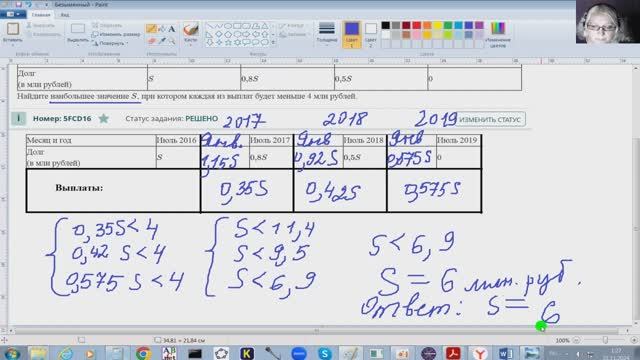 Безымянный - Paint
Вставить
Выделить
Изменить размер
Повернуть
Кисти
Фигуры
Контур
Заливка
Толщина
Цвет 1
Цвет 2
Изменение цветов
Буфер обмена
Изображение
Инструменты
Фигуры
Цвета
Долг
(в млн рублей) S 0,8S 0,5S 0
Найдите наибольшее значение S, при котором каждая из выплат будет меньше 4 млн рублей.
i Номер: 5FCD16 Статус задания: РЕШЕНО ИЗМЕНИТЬ СТАТУС
2017 2018 2019
Месяц и год Июль 2016 Янв. Июль 2017 Янв Июль 2018 Янв Июль 2019
Долг
(в млн рублей) S 1,15S 0,8S 0,92S 0,5S 0,575S 0
Выплаты: 0,35S 0,42S 0,575S
0,35S < 4
0,42 S < 4
0,575 S < 4
S < 11,4
S < 9,5
S < 6,9
S < 6,9
S = 6 млн. руб.
Ответ: S = 6
34,81 × 21,84 см
100%
1:27